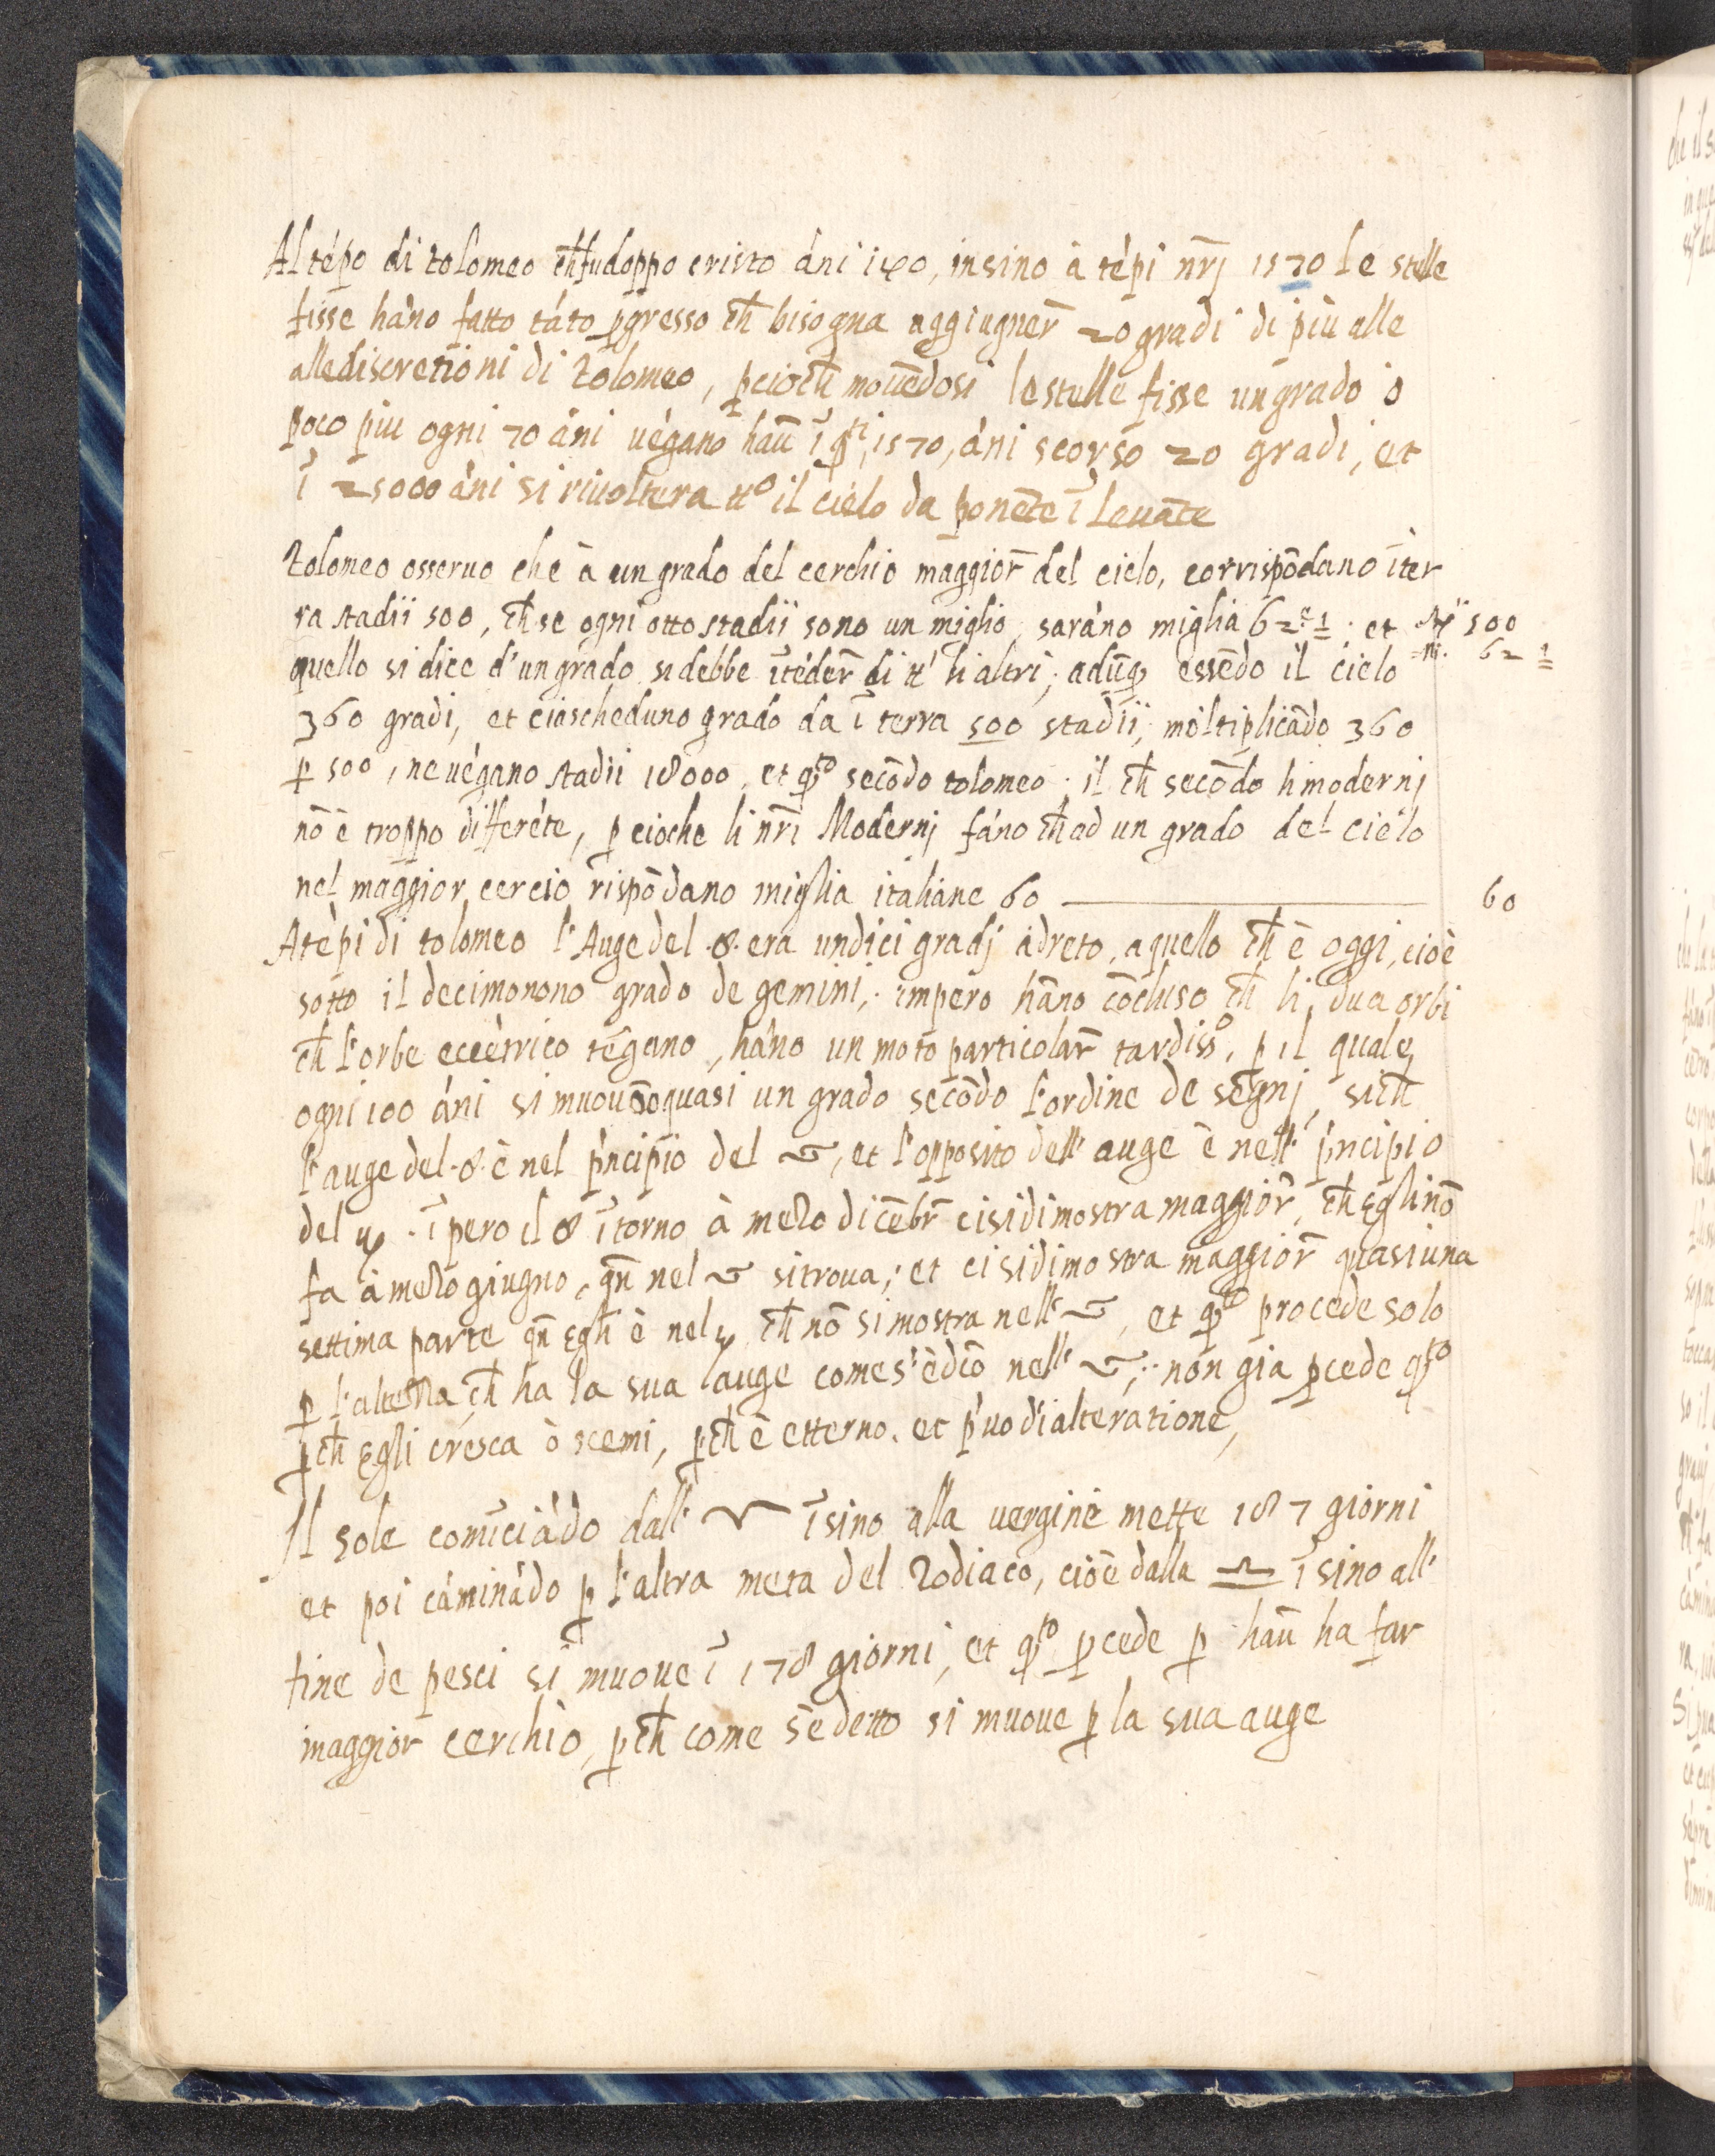 Al tépo di tolomeo ch̄ fu doppo cristo áni 140, in sino à tépi nr̄j 1570 le stelle
fisse háno fatto táto ꝓgresso ch̄ bisogna aggiugner̄ 20 gradi di più alle
alle discretioni di Tolomeo, ꝑcioch̄ mouēdosi le stelle fisse un grado ò
poco piu ogni 70 áni uégano hau̅ ī q̄sti, 1570, áni scorso 20 gradi, et
ī 25000 áni si riuoltera tto il cielo da ponēte ī Leuāte
Tolomeo osseruo che à un grado del cerchio maggior̄ del cielo, corrispōdano īter
ra stadii 500, ch̄ se ogni otto stadii sono un miglio, saráno miglia 62 e 1/2; et
quello si dice d'un grado si debbe ītéder̄ di tt' li altri; adūq; essēdo il cielo
360 gradi, et ciascheduno grado da ī terra 500 stadii, moltiplicādo 360
ꝑ 500, ne uégano stadii 18000, et q̄sto secōdo tolomeo; il ch̄ secōdo li modernj
nō è troppo differéte, ꝑ cioche li nr̄i Modernj fáno ch̄ ad un grado del cielo
nel maggior cercio rispōdano miglia italiane 60 ——— 60
A tépi di tolomeo l'Auge del ☉ era undici gradj àdreto, a quello ch̄ è oggi, cioè
sotto il decimonono grado de gemini; impero hāno cōcluso ch̄ li dua orbi
ch̄ l'orbe eccētrico tégano, háno un moto particolar̄ tardisso, ꝑ il quale,
ogni 100 áni si muouono quasi un grado secōdo l'ordine de segnj, sich̄
l'auge del ☉ è nel p'ncipio del ♋, et l'opposito dell' auge è nell' p'ncipio
del ♑. ī pero il ☉ ītorno à mezo dicēbr̄ ci si dimostra maggior̄, ch̄ Egli nō
fa à mezo giugno, qn̄ nel ♋ si troua; et ci si dimostra maggior̄ quasi una
settima parte qn̄ Egli è nel ♑ ch̄ nō si mostra nell' ♋, et q̄sto procede solo
ꝑ l'altezza ch̄ ha la sua auge come s'è dcō nell' ♋; non gia ꝓcede q̄sto
ꝑch̄ Egli cresca ò scemi, ꝑch̄ è etterno. et p'uo di alteratione,
Il sole comīciádo dall' ♈ īsino alla uergine mette 187 giorni
et poi cáminádo ꝑ l'altra meta del Zodiaco, cioè dalla ♎ īsino all'
fine de pesci si muoue ī 178 giorni, et q̄sto ꝓcede ꝑ hau̅ ha far
maggior cerchio, ꝑch̄ come s'è detto si muoue ꝑ la sua auge
500
62 1/2